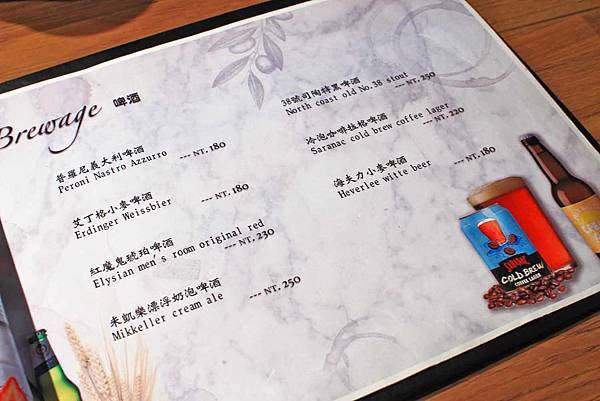 Brewage 啤酒
普羅尼義大利啤酒
Peroni Nastro Azzurro --- NT. 180
艾丁格小麥啤酒
Erdinger Weissbier --- NT. 180
紅魔鬼琥珀啤酒
Elysian men's room original red
--- NT. 230
米凱樂漂浮奶泡啤酒
Mikkeller cream ale --- NT. 250
38號司陶特黑啤酒
North coast old No.38 stout
--- NT. 250
冷泡咖啡拉格啤酒
Saranac cold brew coffee lager
--- NT. 220
海夫力小麥啤酒
Heverlee witte beer --- NT. 180
COLD BREW
COFFEE LAGER